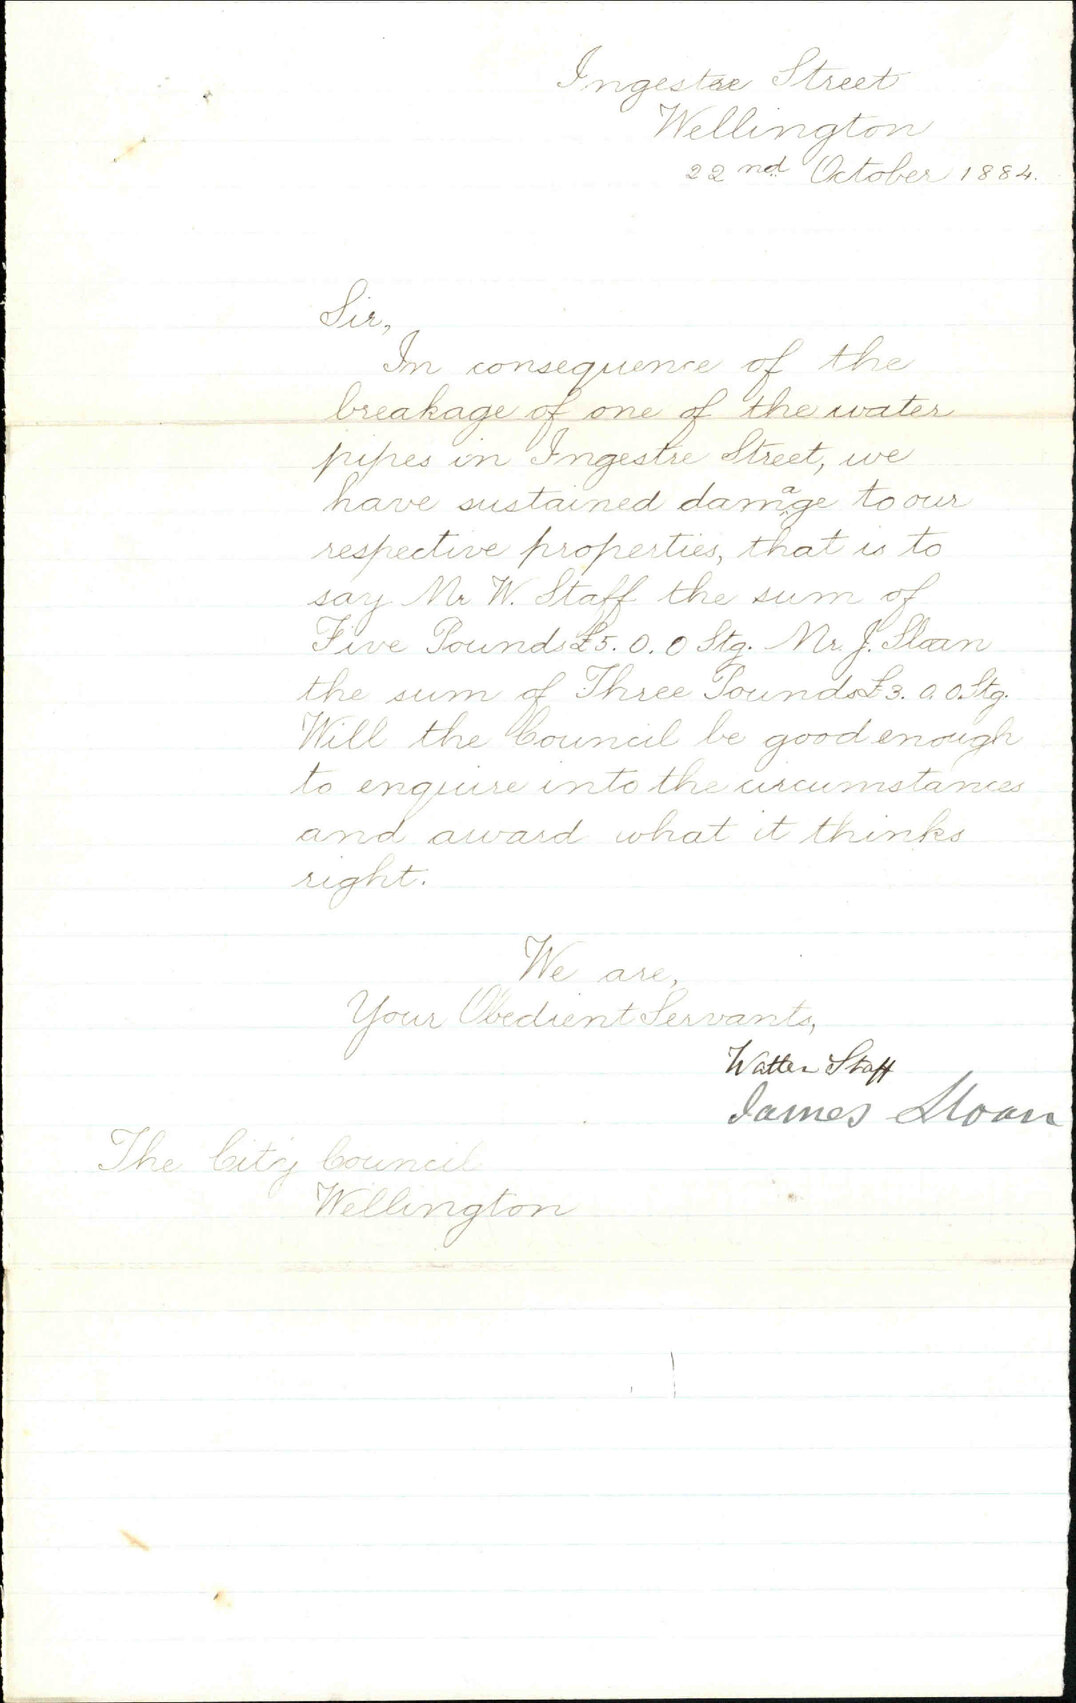 Ingestre Street
Wellington
22nd October 1884.
Sir,
In consequence of the
breakage of one of the water
pipes in Ingestre Street, we
have sustained damage to our
respective properties, that is to
say Mr W. Staff the sum of
Five Pounds £5. 0. 0 Stg. Mr. J. Sloan
the sum of Three Pounds £3. 0. 0. Stg.
Will the Council be good enough
to enquire into the circumstances
and award what it thinks
right.
We are,
Your Obedient Servants,
Walter Staff
James Sloan
The City Council
Wellington